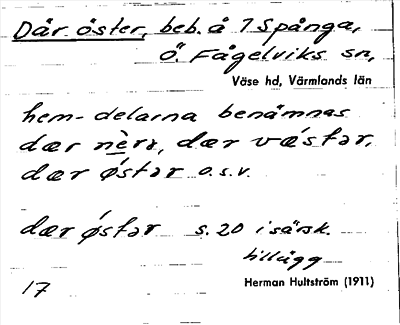 Där öster, beb. å 7 Spånga,
Ö. Fågelviks sn,
Väse hd, Värmlands län
hem-delarna benämnas
dær nèrə, dær vǽstər,
dær ǿstər o.s.v.
dær ǿstər s. 20 i särsk.
tillägg
17
Herman Hultström (1911)